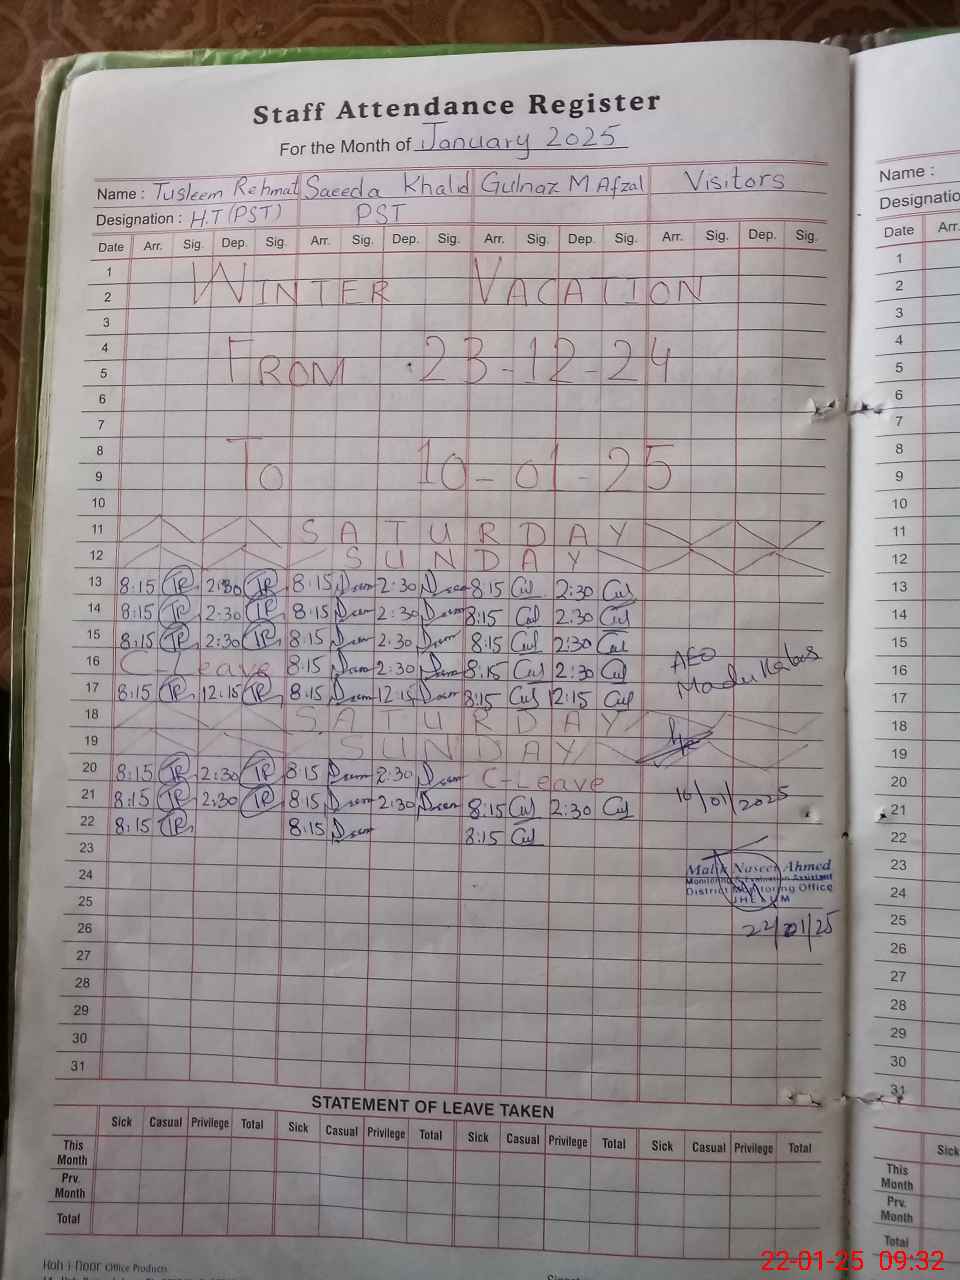 Staff Attendance Register
For the Month of January 2025
Name : Tusleem Rehmat Saeeda Khalid Gulnaz M Afzal Visitors
Designation : H.T (PST) PST
Date Arr. Sig. Dep. Sig. Arr. Sig. Dep. Sig. Arr. Sig. Dep. Sig. Arr. Sig. Dep. Sig.
1
2 WINTER VACATION
3
4
5 FROM 23-12-24
6
7
8
9 To 10-01-25
10
11 SATURDAY
12 SUNDAY
13 8:15 TR 2:30 TR 8:15 2:30 8:15 2:30
14 8:15 TR 2:30 TR 8:15 2:30 8:15 2:30
15 8:15 TR 2:30 TR 8:15 2:30 8:15 2:30
16 C-Leave 8:15 2:30 8:15 2:30 AEO
17 8:15 TR 12:15 TR 8:15 12:15 8:15 12:15
18 SATURDAY
19 SUNDAY
20 8:15 TR 2:30 TR 8:15 2:30 C-Leave
21 8:15 TR 2:30 TR 8:15 2:30 8:15 2:30 16/01/2025
22 8:15 TR 8:15 8:15
23
24 Malik Naseer Ahmed
Monitoring & Evaluation Assistant
25 District Monitoring Office
JHELUM
26 22/01/25
27
28
29
30
31
STATEMENT OF LEAVE TAKEN
Sick Casual Privilege Total Sick Casual Privilege Total Sick Casual Privilege Total Sick Casual Privilege Total
This Month
Prv. Month
Total
Koh-i-noor Office Products
Name :
Date Arr.
1
2
3
4
5
6
7
8
9
10
11
12
13
14
15
16
17
18
19
20
21
22
23
24
25
26
27
28
29
30
31
Sick
This Month
Prv. Month
Total
22-01-25 09:32